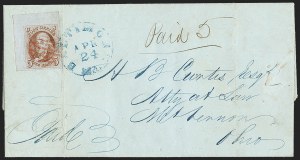 Paid 5
APR
24
H B Curtis, Esqr
Atty at Law
Mt Vernon
Ohio
Paid 3